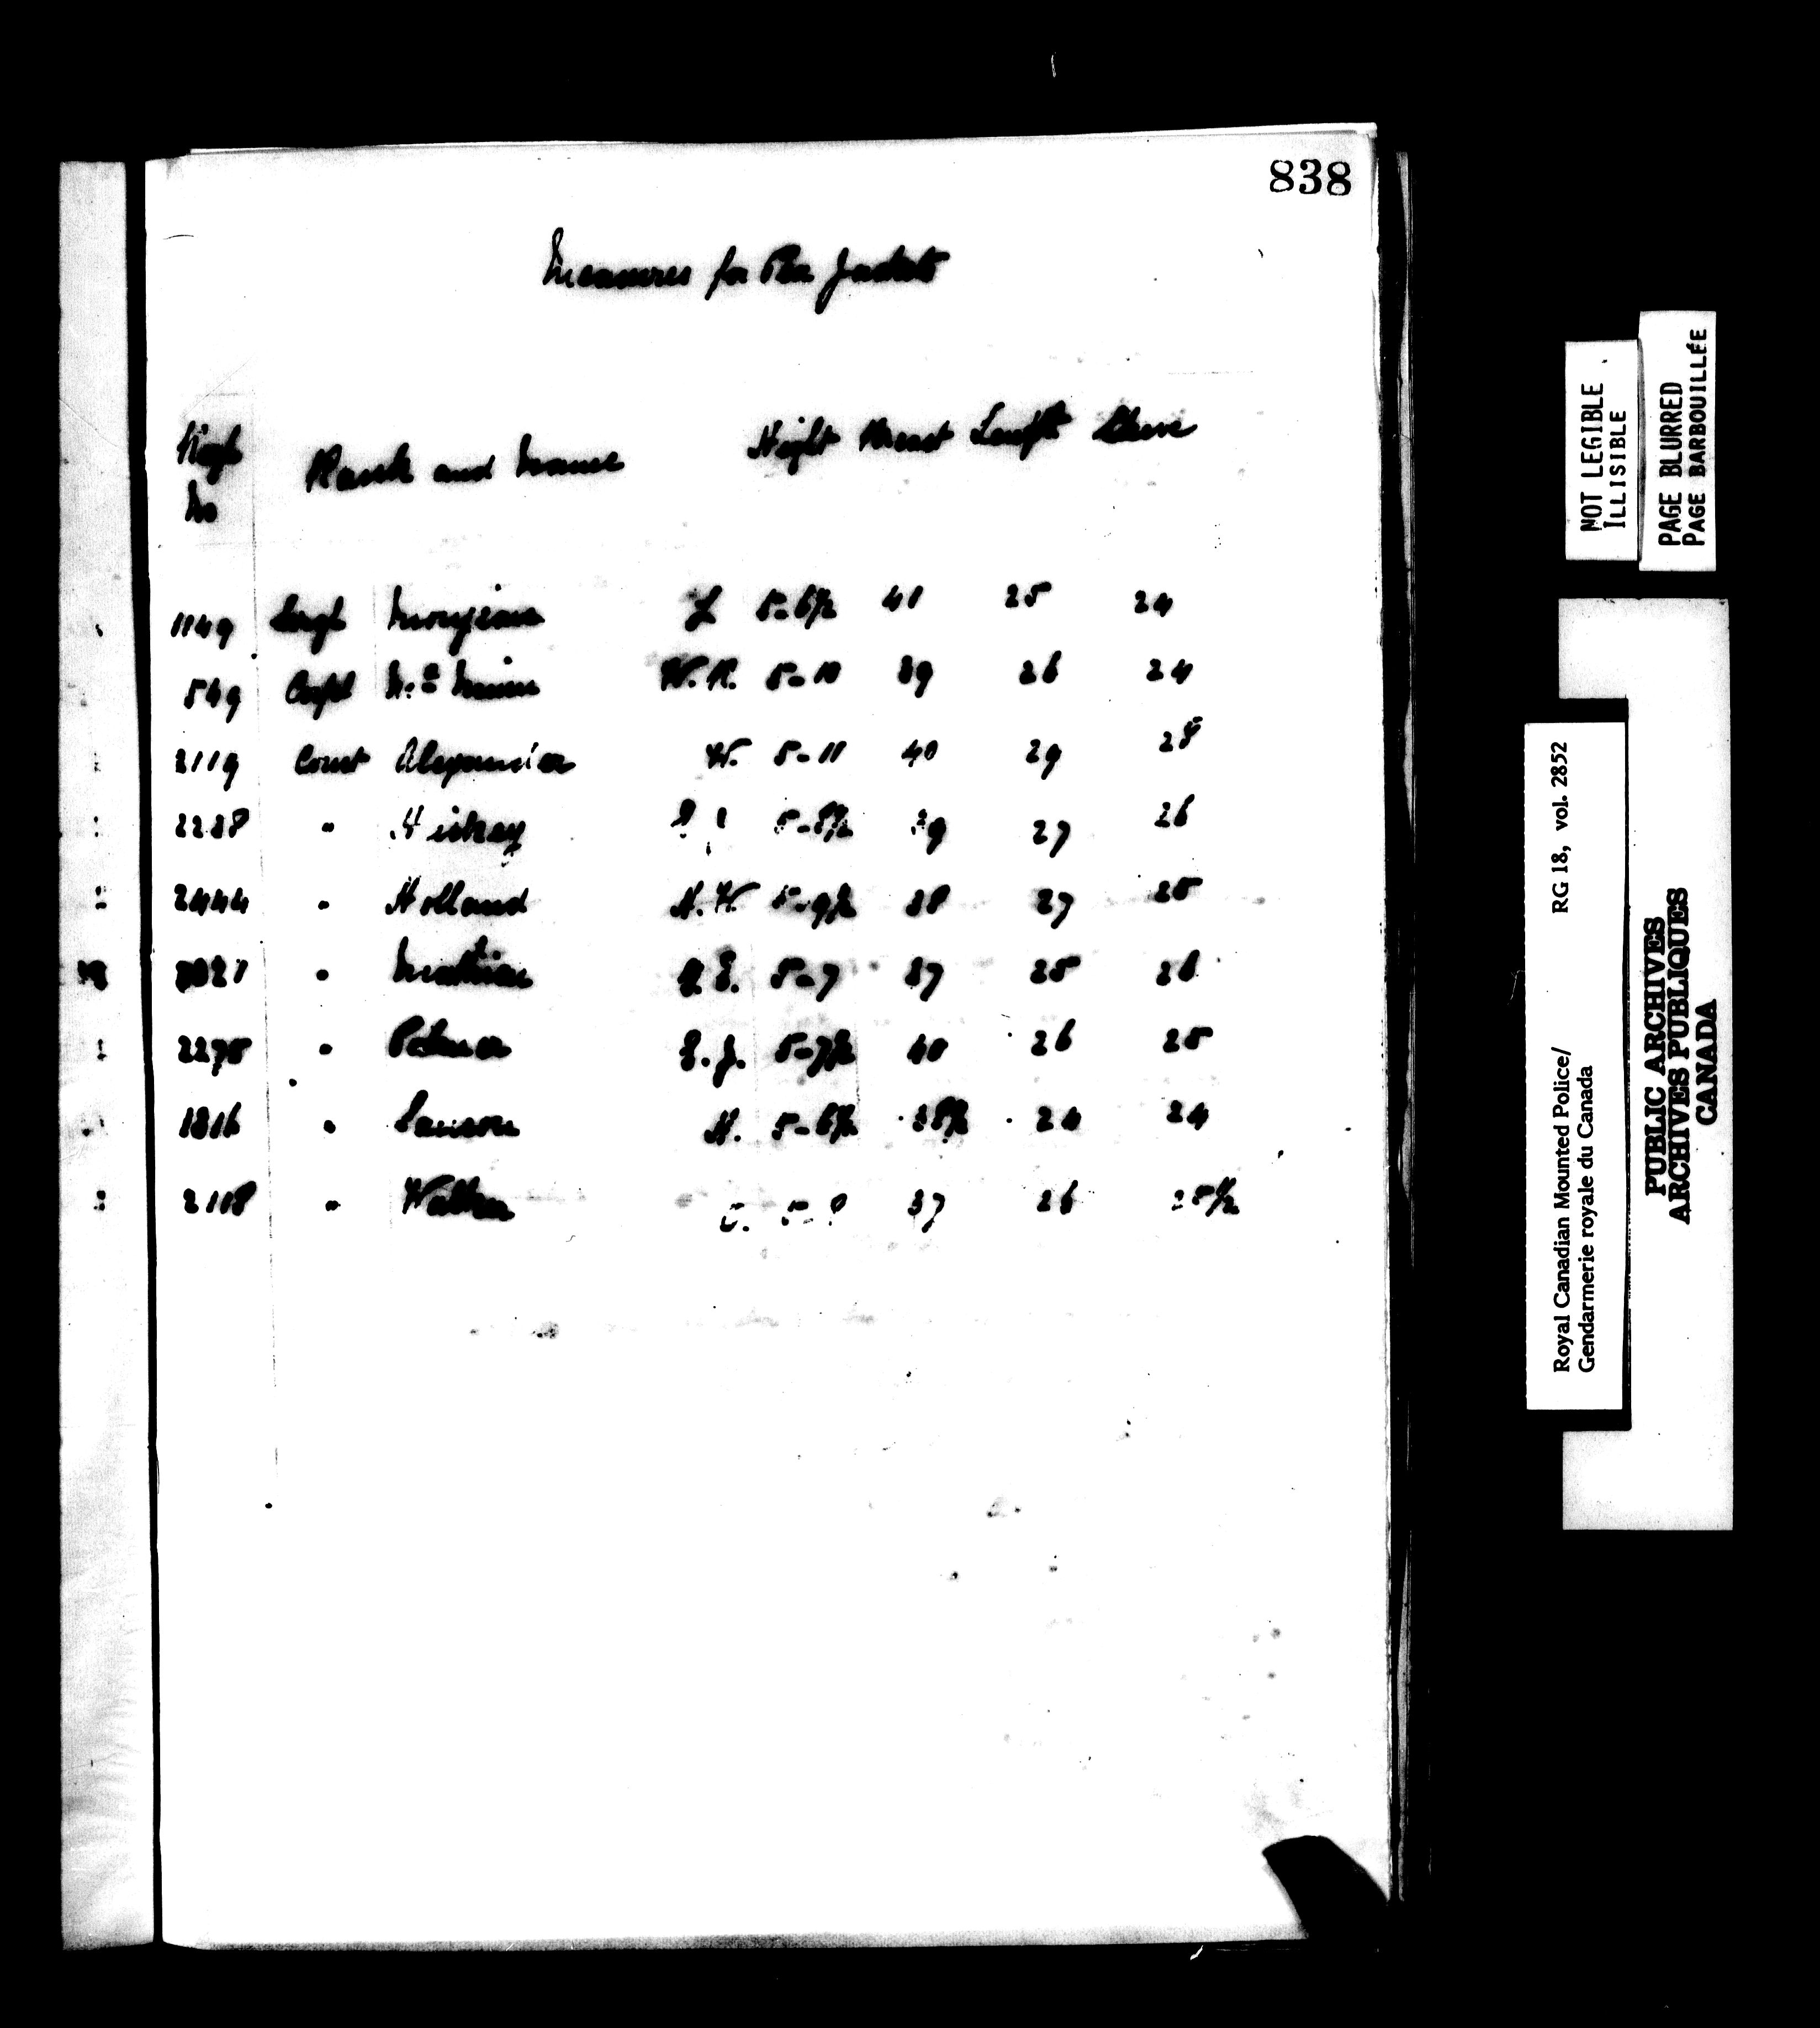 838
Measures for Pea Jackets
Regl
No
Rank and Name Height Breast Length Sleeve
1149 Sergt 5-6½ 41 25 24
549 Corpl McMinn W.R. 5-10 39 26 24
2119 Const Alexander W. 5-11 40 29 28
2238 " Hickey 5-8½ 39 27 26
2444 " Holland H.W. 5-9½ 38 27 25
" 5-7 37 25 26
2275 " Palmer E.J. 5-7½ 40 26 25
1816 " H. 5-6½ 38½ 24 24
2118 " Walker 37 26 25½
NOT LEGIBLE
ILLISIBLE
PAGE BLURRED
PAGE BARBOUILLÉE
Royal Canadian Mounted Police/ RG 18, vol. 2852
Gendarmerie royale du Canada
PUBLIC ARCHIVES
ARCHIVES PUBLIQUES
CANADA